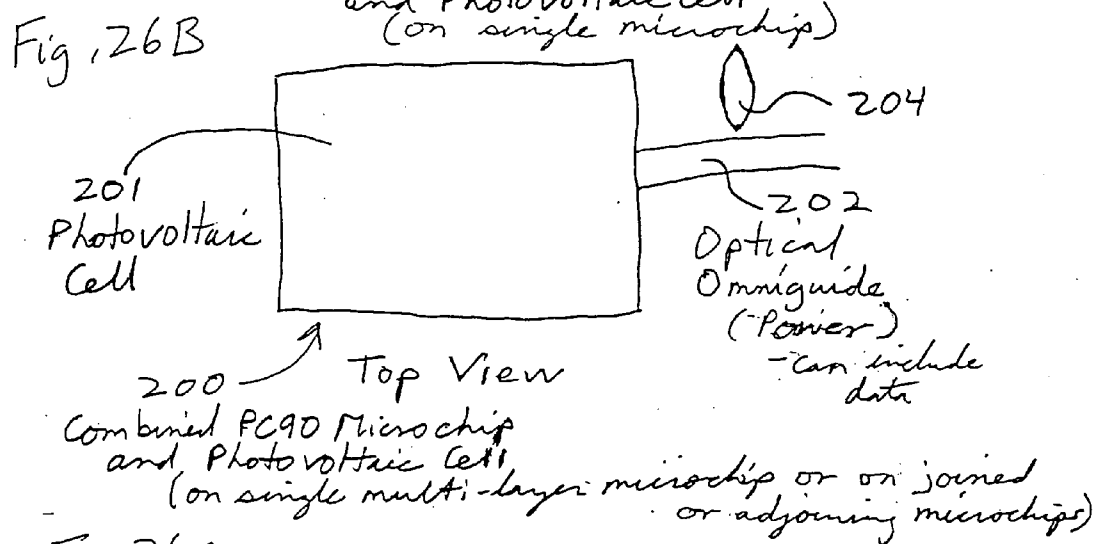 and Photovoltaic Cell
(on single microchip)
Fig. 26B
204
201
Photovoltaic
Cell
202
Optical
Omniguide
(Power)
- can include
data
Top View
200
Combined PC90 Microchip
and Photovoltaic Cell
(on single multi-layer microchip or on joined
or adjoining microchips)